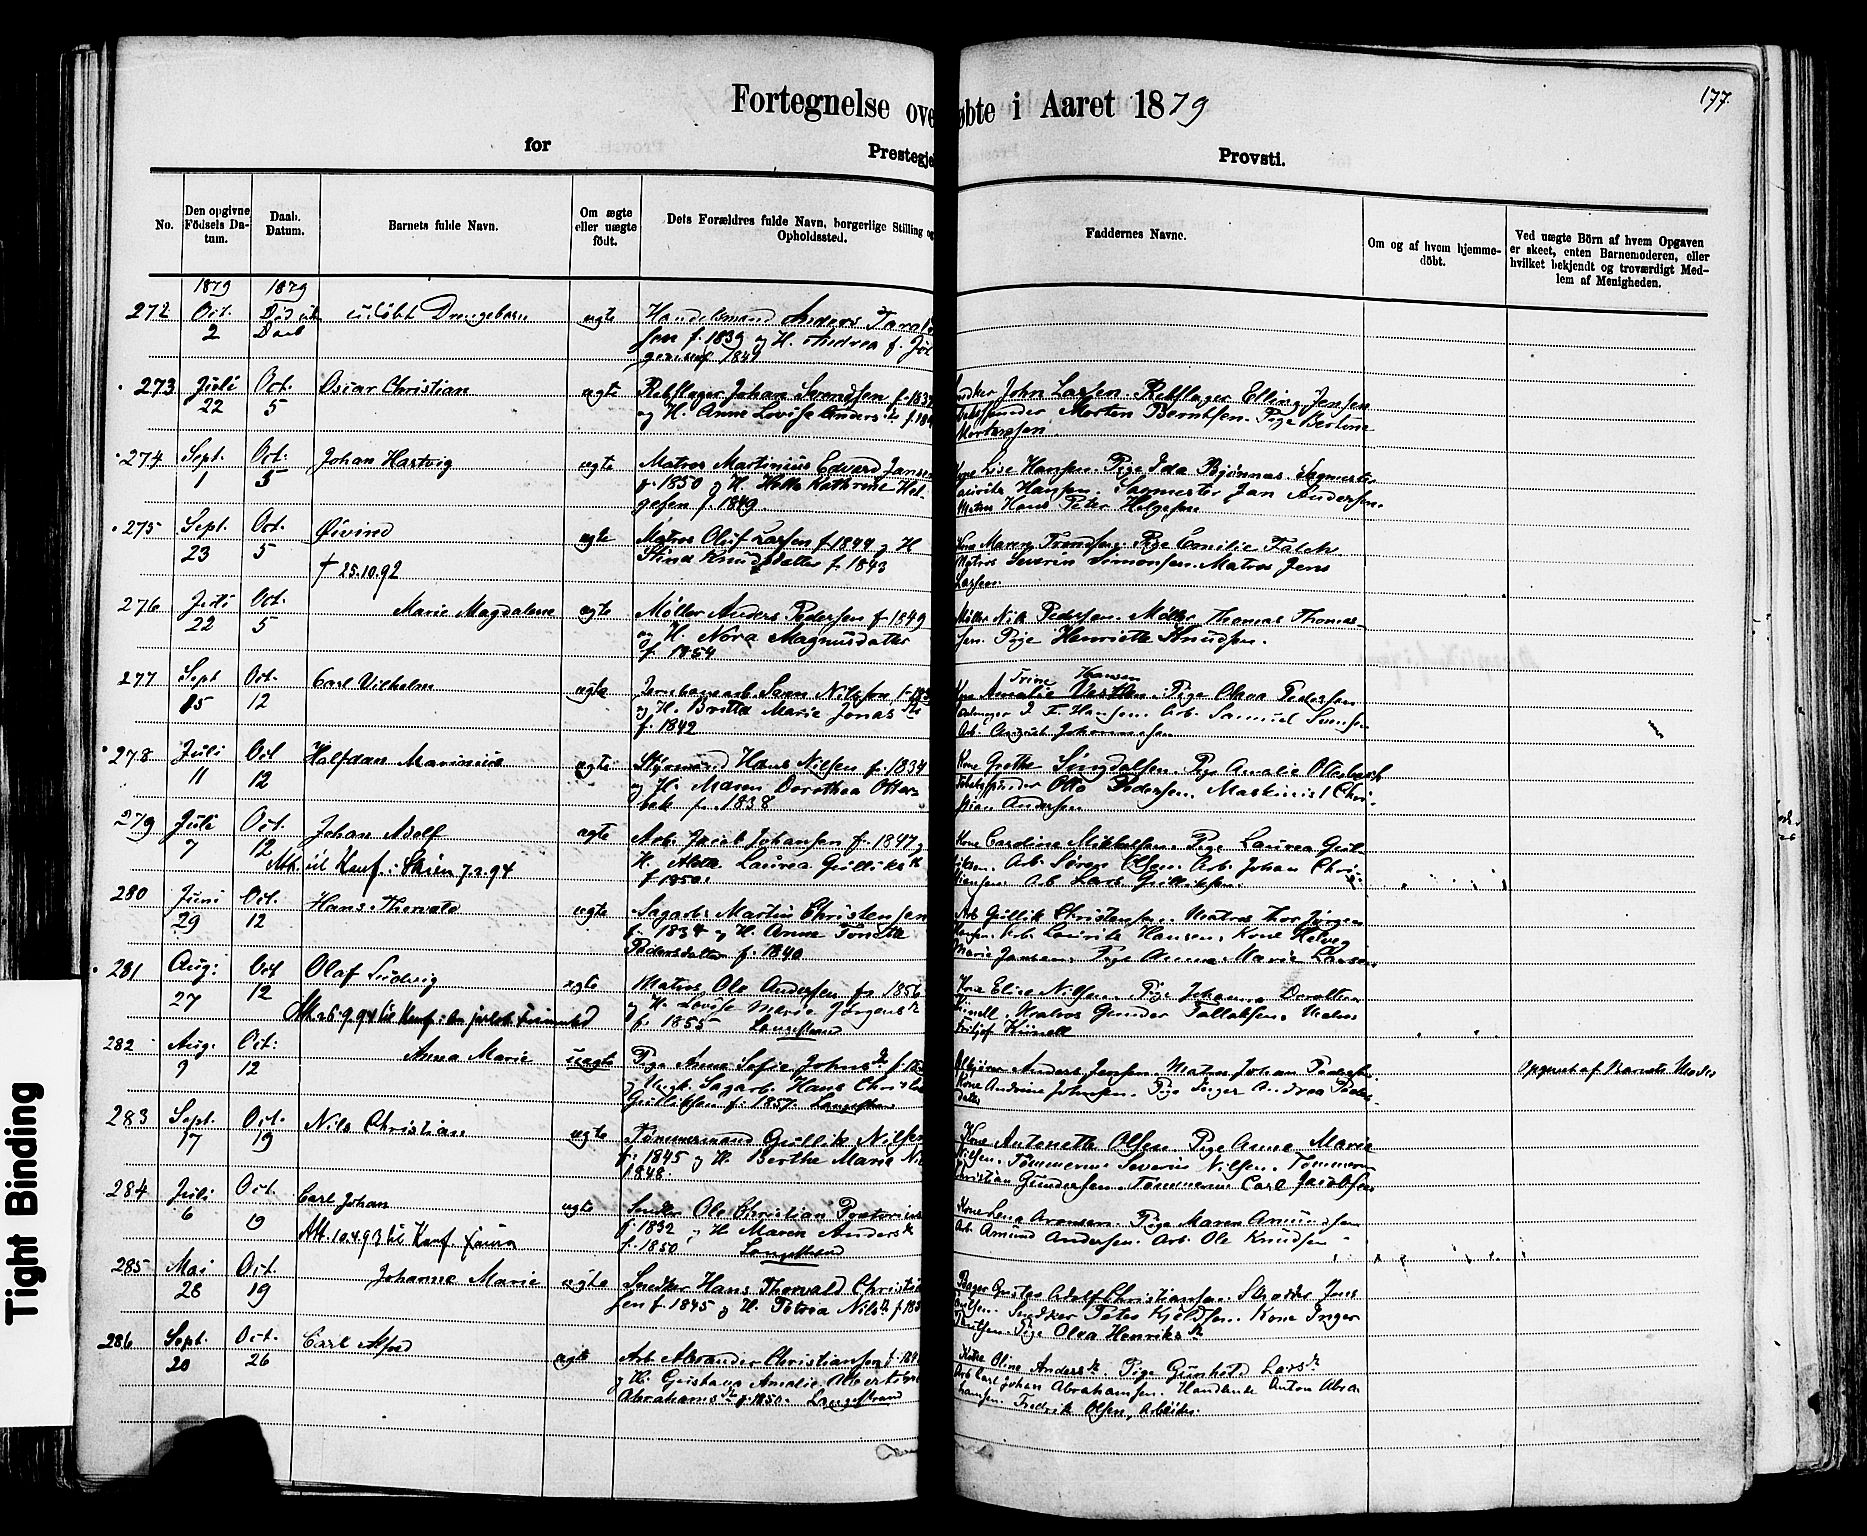 Fortegnelse ove øbte i Aaret 1879
177.
for Prestegje Provsti.
No.
Den opgivne Födsels Da-tum.
Daab. Datum.
Barnets fulde Navn.
Om ægte eller uægte födt.
Dets Forældres fulde Navn, borgerlige Stilling og Opholdssted.
Faddernes Navne.
Om og af hvem hjemme-döbt.
Ved uægte Börn af hvem Opgaven er skeet, enten Barnemoderen, eller hvilket bekjendt og troværdigt Med-lem af Menigheden.
1879 1879
272 Oct. 2 Død ud. Daab udøbt Drengebarn ægte Handelsmand Anders Taral
sen f. 1839 og H. Andrea f. Jör
gensen 1849
273 Juli 22 Oct. 5 Oscar Christian ægte Rebslager Johan Svendsen f. 183
og H. Anne Lovise Anders Dr f. 184
John Larsen. Rebslager Elling Jensen
Morten Berntsen. Pige Bertine
Mortensen.
274 Sept. 1 Oct. 5 Johan Hartvig ægte Matros Martinius Edvard Jansen
f. 1850 og H. Helle Kathrine Hel-
gesen f. 1849.
Lise Hansen. Pige Ida Bjønnes. Sagmester
Laurits Hansen. Sagmester Jan Andersen.
Matros Hans Peter Helgesen
275 Sept. 23 Oct. 5 Øivind ægte Matros Oluf Larsen f. 1844 og H
† 25.10.92
Stina Knudsdatter f. 1843
Kone Maren Trondsen. Pige Emilie Falck
Matros Severin Simonsen. Matros Jens
Larsen.
276 Juli 22 Oct. 5 Marie Magdalene ægte Møller Anders Pedersen f. 1849
og H. Nora Magnusdatter
f. 1854
Møller Nils Pedersen. Møller Thomas Thomas-
sen. Pige Henriette Knudsen.
277 Sept 15 Oct. 12 Carl Vilhelm ægte Jernbanearb. Sven Nilsson f. 18
og H. Britta Marie Jonas Dr
f. 1842
Trine Hansen
Kone Amalie. Pige Olava Pedersen
J. F. Hansen. Arb. Samuel Svensen
Arb. August Johannesen
278 Juli 11 Oct 12 Halfdan Marinius ægte Styrmand Hans Nilsen f. 1834
og H. Maren Dorothea Otter-
bek f. 1838
Kone Grethe Songdalsen. Pige Amalie Otterbech
Otto Pedersen. Maskinist Chri-
stian Andersen
279 Juli 7 Oct. 12 Johan Adolf ægte Arb. Jacob Johansen f. 1847 og
Att. til Konf. i Skien 7.2.94
H. Alette Laurea Gulliks Dr
f. 1850.
Kone Caroline Mikkelsen. Pige Laurea Gul-
liksen. Arb. Søren Olsen. Arb. Johan Chri-
stiansen. Arb Lars Gulliksen.
280 Juni 29 Oct. 12 Hans Thorvald ægte Sagarb. Martin Christensen
f. 1834 og H. Anne Tonette
Pedersdatter f. 1840
Arb Gullik Christensen. Matros Thor Jørgen
Hansen. Arb. Laurits Hansen. Kone Helvig
Marie Jansen. Pige Anna Marie Larsen
281 Aug: 27 Oct 12 Olaf Ludvig ægte Matros Ole Andersen f. 1856
Att 26.9.94 til Konf.
og H. Lovise Marie Jørgens Dr
f. 1855 Langestrand
Kone Elise Nilsen. Pige Johanne Dorothea
Kinell. Matros Gunder Tallaksen. Matros
Fritjof Kinell
282 Aug: 9 Oct: 12 Anna Marie uægte Pige Anne Sofie Johns Dr f. 185
og Ungk. Sagarb. Hans Christian
Gulliksen f. 1857. Langestrand
Anders Jensen. Matros Johan Pedersen.
Kone Andrine Johnsen. Pige Inger Andrea Peder-
datter
Opgivet af Barnets Moder
283 Sept. 17 Oct. 19 Nils Christian ægte Tømmermand Gullik Nilsen
f. 1845 og H. Berthe Marie Ni
1848.
Kone Antonette Olsen. Pige Anne Marie
Nilsen. Tømmerm. Severin Nilsen. Tømmerm
Christian Gundersen. Tømmerm. Carl Jacobsen
284 Juli 6 Oct. 19 Carl Johan ægte Smed Ole Christian Pretorius
Att. 10.4.93 til Konf.
f. 1832 og H. Maren Anders Dr
f. 1850 Langestrand
Kone Lena Arensen. Pige Maren Amundsen
Arb. Amund Andersen. Arb. Ole Knudsen
285 Mai 28 Oct. 19 Johanne Marie ægte Snedker Hans Thorvald Christian
sen f. 1845 og H. Petrea Nils Dr f. 18
Bager Gustav Adolf Christiansen. Skredder Jens
Nilsen. Snedker Peter Kjeldsen. Kone Inger
Knudsen. Pige Olea Henriks Dr
286 Sept. 20 Oct. 26 Carl Alfred ægte Arb. Alexander Christiansen f. 184
og H. Gustava Amalie Albertine
Abrahams Dr f. 1850. Langestrand
Kone Oline Anders Dr. Pige Gunhild Lars Dr
Arb Carl Johan Abrahamsen. Handlende Anton Abra-
hamsen. Fredrik Olsen, Arbeider.
Tight Binding